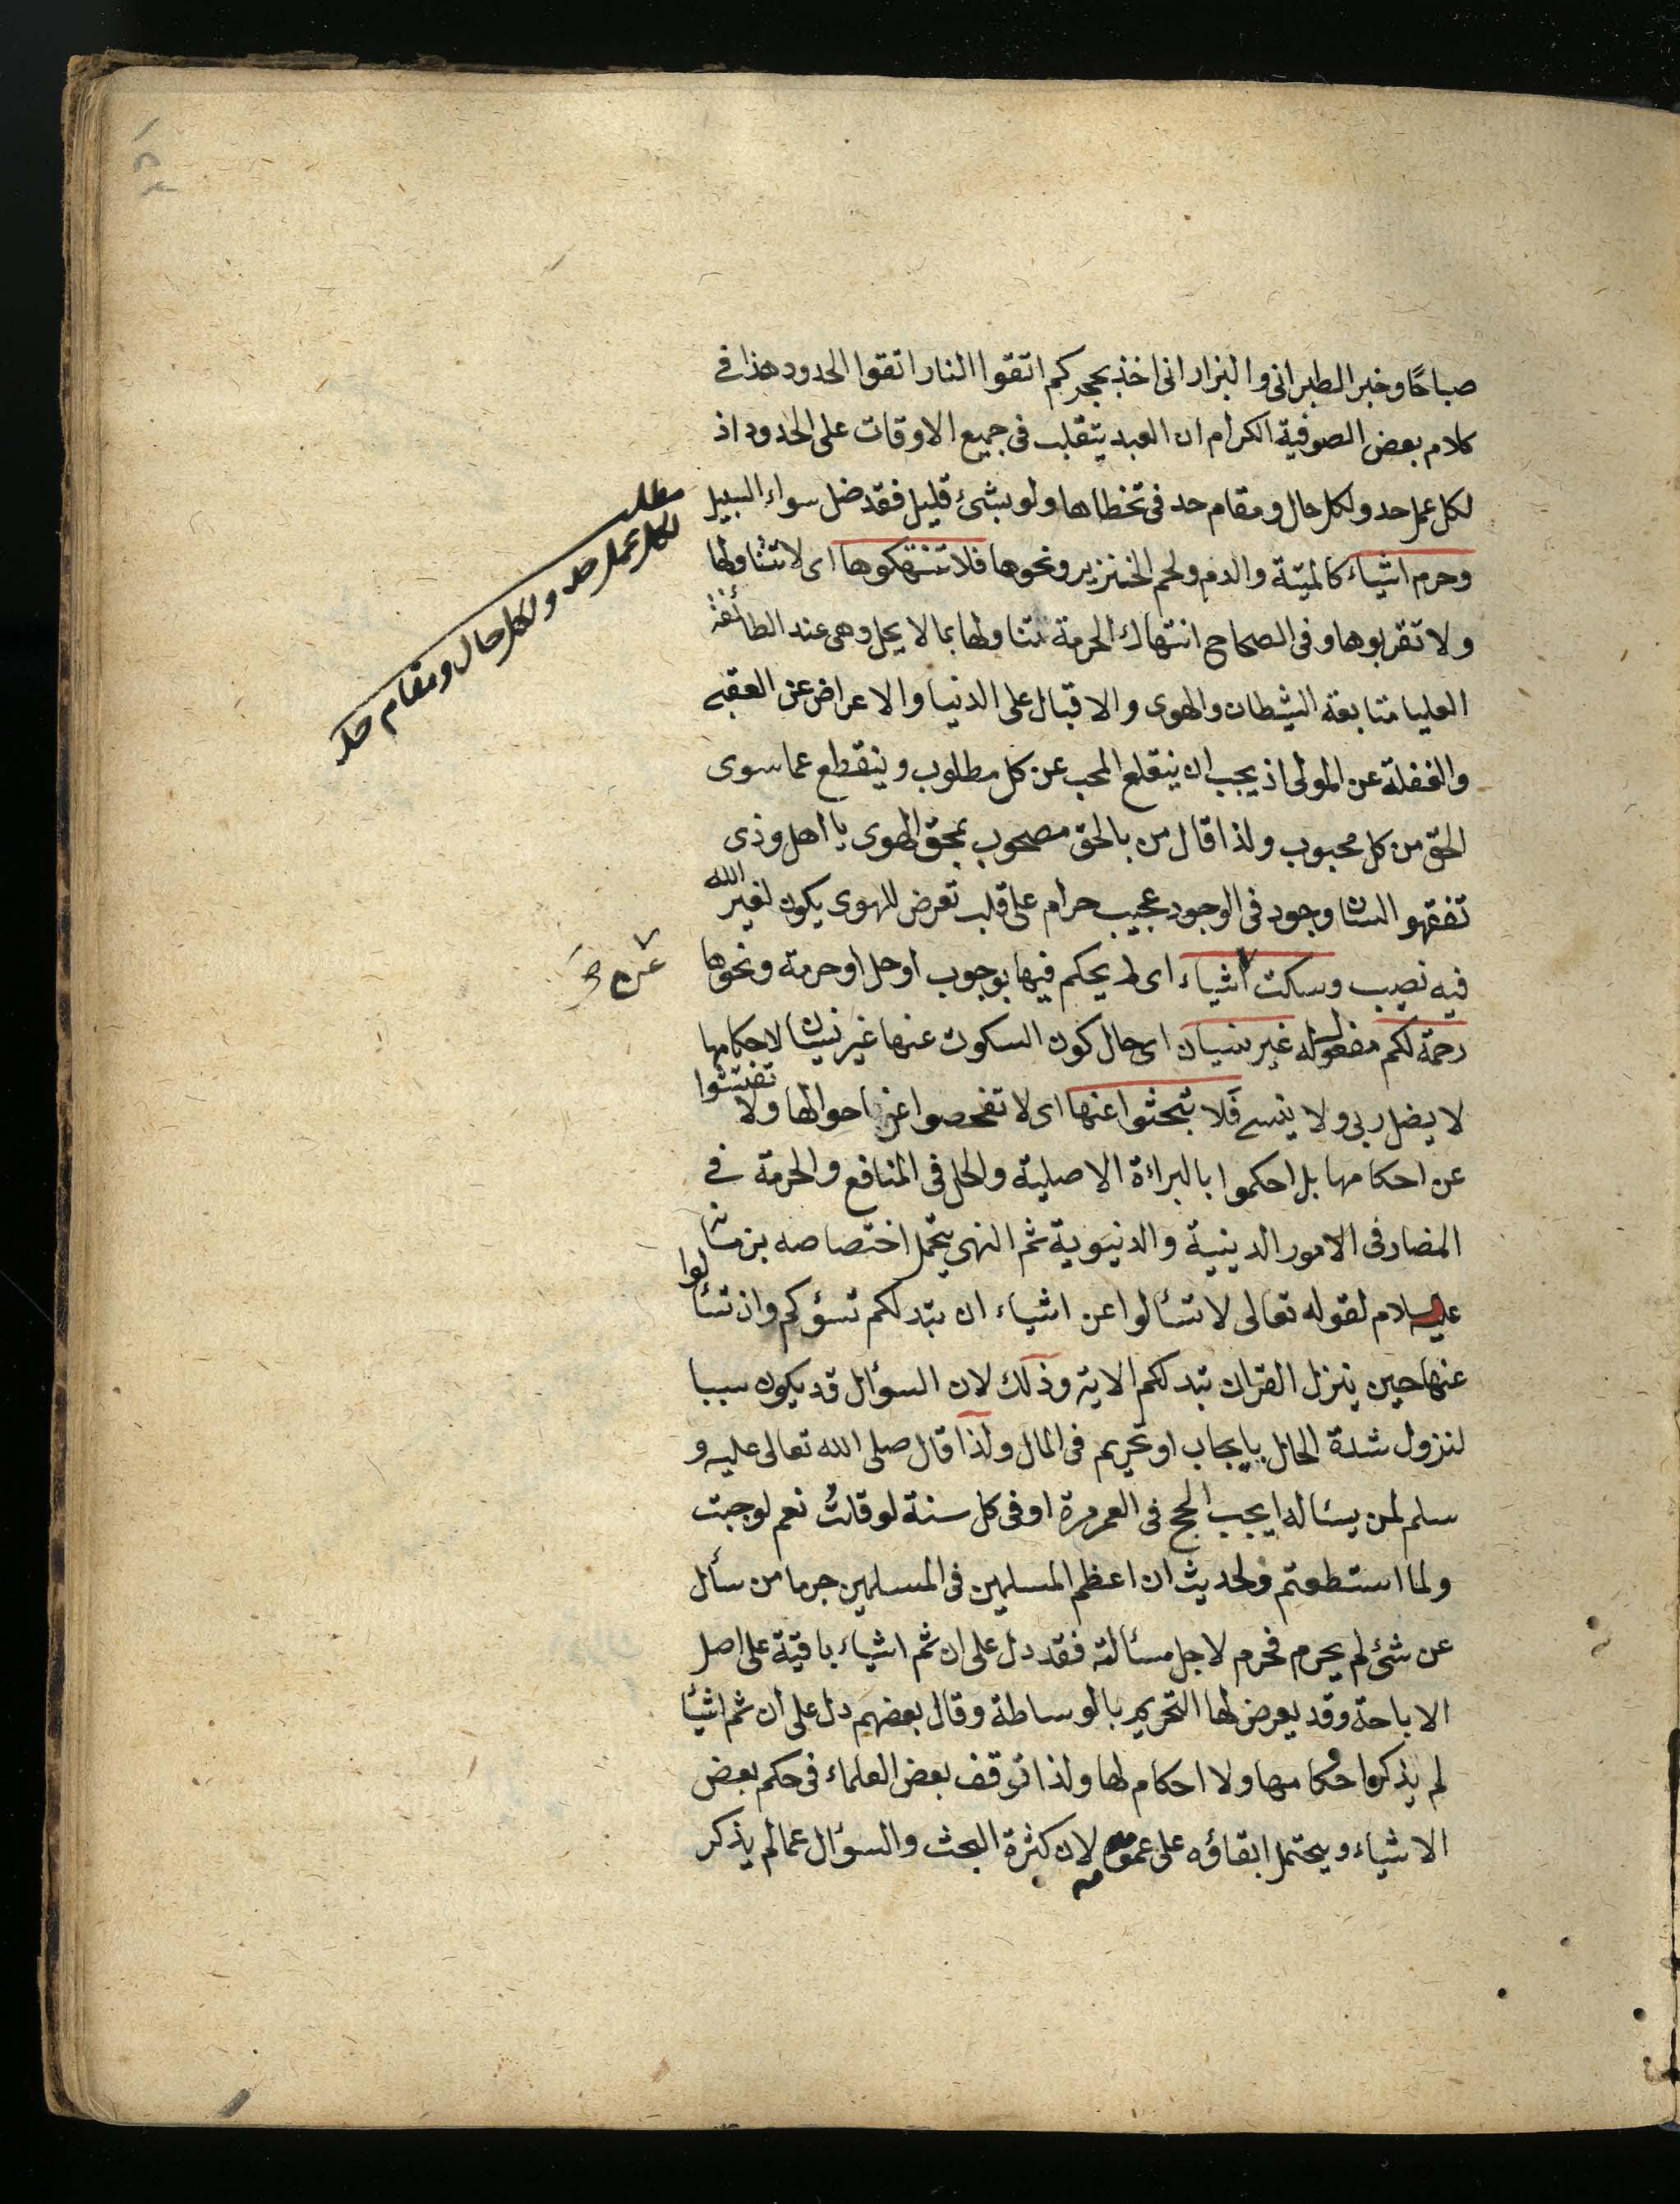 صباحًا وخبر الطبرانى والبزار انى اخذ بحجركم اتقوا النار اتقوا الحدود هذا فى
كلام بعض الصوفية الكرام ان العبد يتقلب فى جميع الاوقات على الحدود اذ
لكل عمل حد ولكل حال ومقام حد فمن تخطاها ولو بشئ قليل فقد ضل سواء السبيل
وحرم اشياء كالميتة والدم ولحم الخنزير ونحوها فلا تنتهكوها اى لا تتناولها
ولا تقربوها وفى الصحاح انتهاك الحرمة تناولها بما لا يحل وهى عند الطائفة
العليا متابعة الشيطان والهوى والاقبال على الدنيا والاعراض عن العقبى
والغفلة عن المولى اذ يجب ان ينقلع المحب عن كل مطلوب وينقطع عما سوى
الحق من كل محبوب ولذا قال من بالحق مصحوب بمحق الهوى يا اهل وذى
تفقهوا لسان وجود فى الوجود عجيب حرام على قلب تعرض للهوى يكون لغير الله
فيه نصيب وسكت اشياء اى لم يحكم فيها بوجوب او حل او حرمة ونحوها
رحمة لكم مفعول له غير نسيان اى حال كون السكوت عنها غير نسيان لاحكامها
لا يضل ربى ولا ينسى فلا تبحثوا عنها اى لا تفحصوا عن احوالها ولا تفتشوا
عن احكامها بل احكموا بالبراءة الاصلية والحل فى المنافع والحرمة فى
المضار فى الامور الدينية والدنيوية ثم النهى يحتمل اختصاصه بزمانه
عليه السلام لقوله تعالى لا تسألوا عن اشياء ان تبد لكم تسؤكم وان تسألوا
عنها حين ينزل القران تبد لكم الاية وذلك لان السؤال قد يكون سببا
لنزول شدة الحال بايجاب او تحريم فى المال ولذا قال صلى الله تعالى عليه و
سلم لمن يسأله ايجب الحج فى العمر مرة او فى كل سنة لو قلتُ نعم لوجبت
ولما استطعتم ولحديث ان اعظم المسلمين فى المسلمين جرما من سأل
عن شئ لم يحرم فحرم لاجل مسألته فقد دل على ان ثم اشياء باقية على اصل
الاباحة وقد يعرض لها التحريم بالوساطة وقال بعضهم دل على ان ثم اشيا
لم يذكر احكامها ولا احكام لها ولذا توقف بعض العلماء فى حكم بعض
الاشياء ويحتمل ابقاؤه على عمومه لان كثرة البحث والسؤال عما لم يذكر
مطلب
لكل عمل حد ولكل حال ومقام حد
عن صح